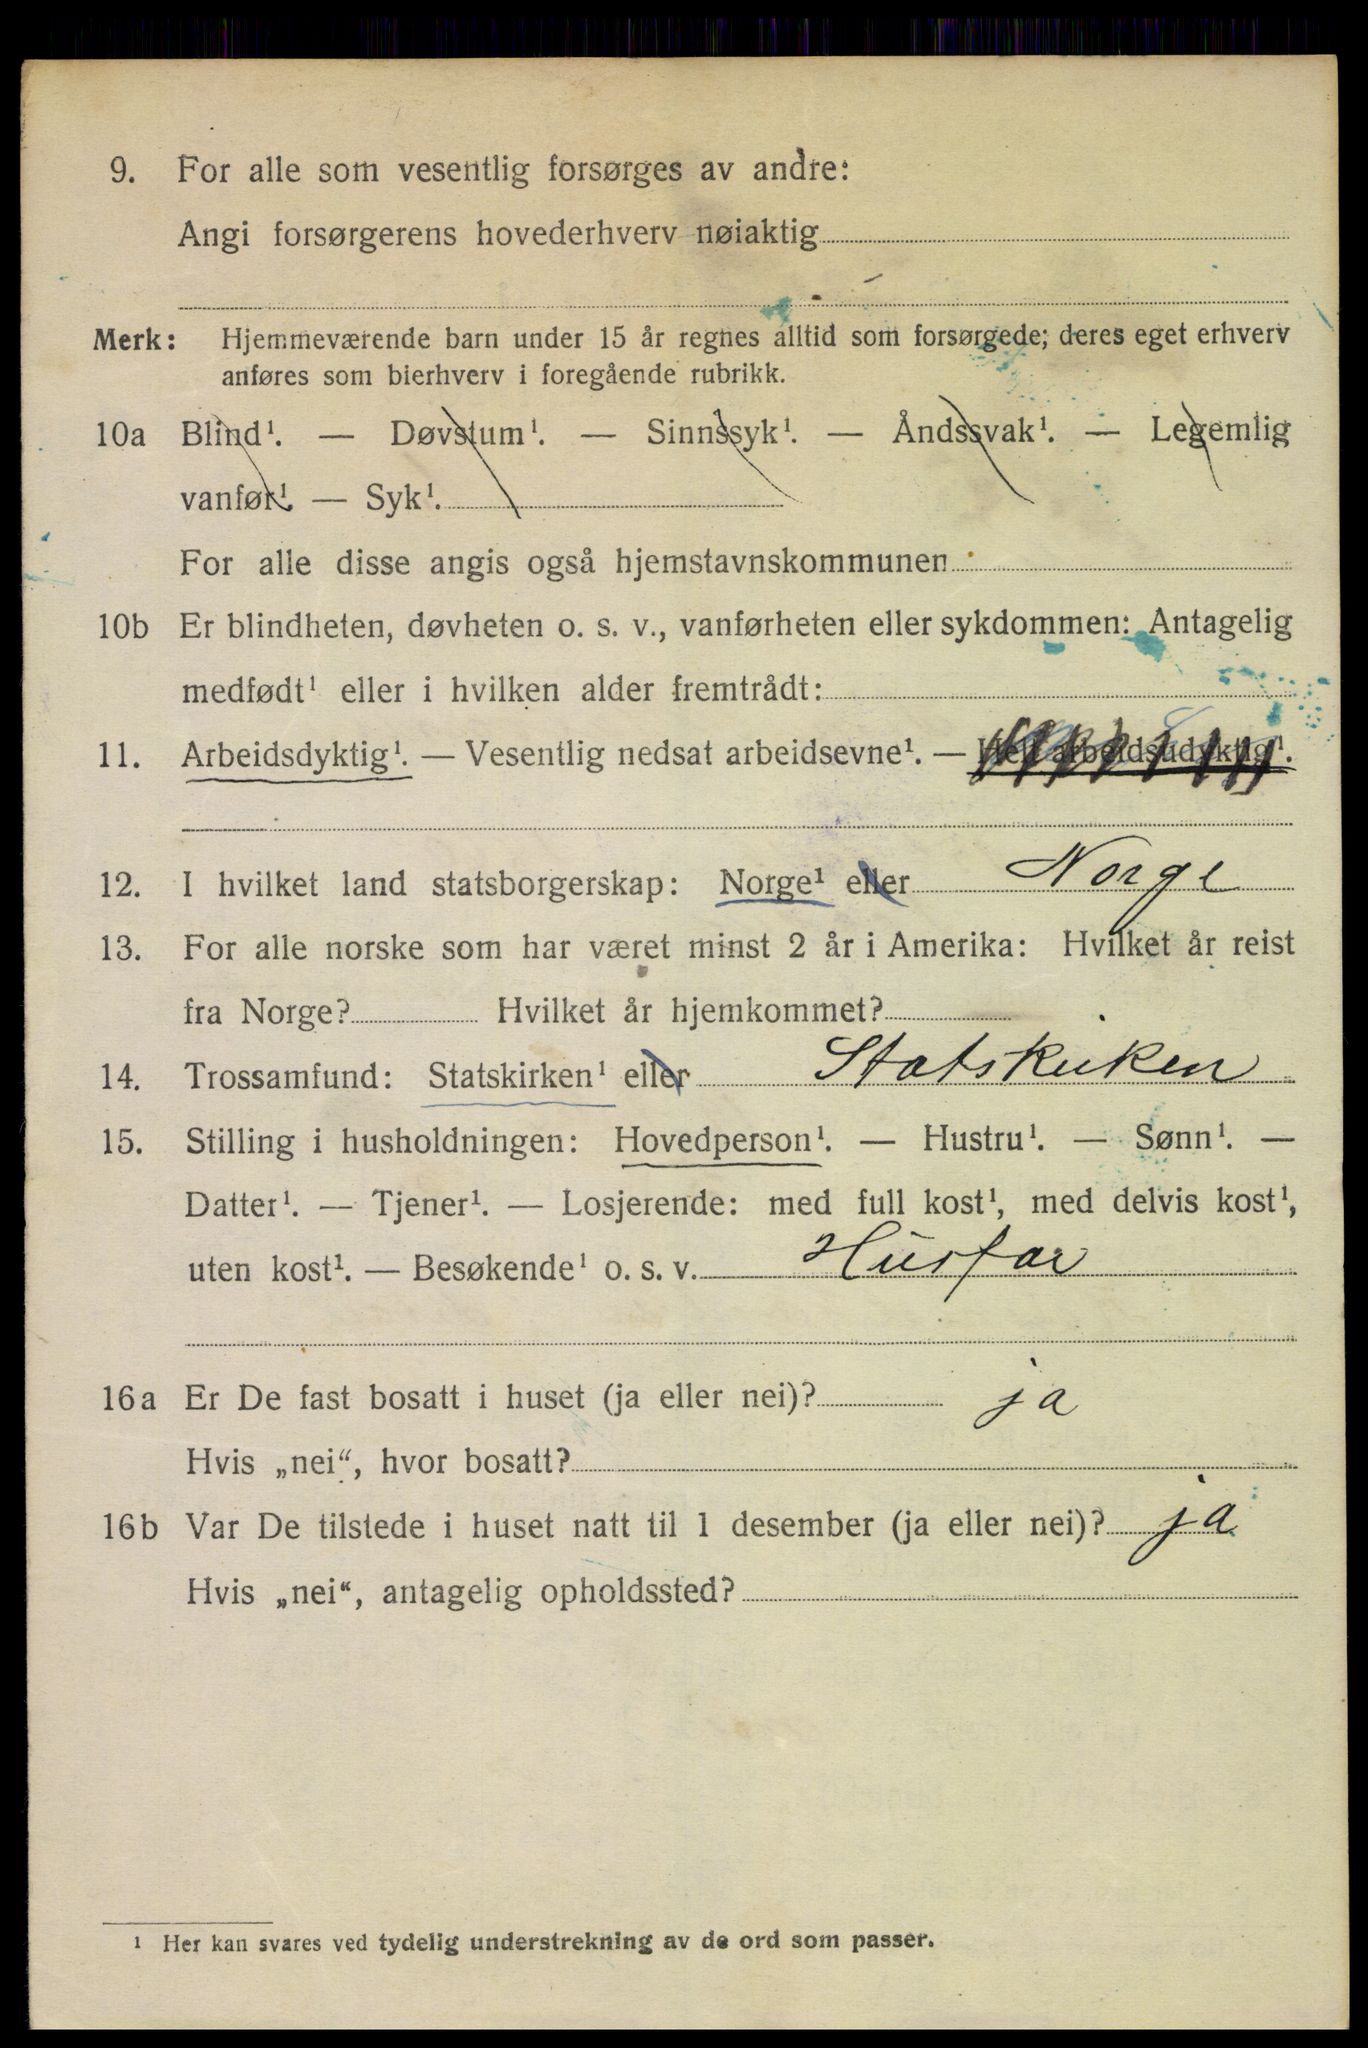 9. For alle som vesentlig forsørges av andre:
Angi forsørgerens hovederhverv nøiaktig
Merk: Hjemmeværende barn under 15 år regnes alltid som forsørgede; deres eget erhverv
anføres som bierhverv i foregående rubrikk.
10a Blind¹. — Døvstum¹. — Sinnssyk¹. — Åndssvak¹. — Legemlig
vanfør¹. — Syk¹.
For alle disse angis også hjemstavnskommunen
10b Er blindheten, døvheten o. s. v., vanførheten eller sykdommen: Antagelig
medfødt¹ eller i hvilken alder fremtrådt:
11. Arbeidsdyktig¹. — Vesentlig nedsat arbeidsevne¹. — Helt arbeidsudyktig¹.
12. I hvilket land statsborgerskap: Norge¹ eller Norge
13. For alle norske som har været minst 2 år i Amerika: Hvilket år reist
fra Norge? Hvilket år hjemkommet?
14. Trossamfund: Statskirken¹ eller Statskirken
15. Stilling i husholdningen: Hovedperson¹. — Hustru¹. — Sønn¹. —
Datter¹. — Tjener¹. — Losjerende: med full kost¹, med delvis kost¹,
uten kost¹. — Besøkende¹ o. s. v. Husfar
16a Er De fast bosatt i huset (ja eller nei)? ja
Hvis „nei“, hvor bosatt?
16b Var De tilstede i huset natt til 1 desember (ja eller nei)? ja
Hvis „nei“, antagelig opholdssted?
¹ Her kan svares ved tydelig understrekning av de ord som passer.